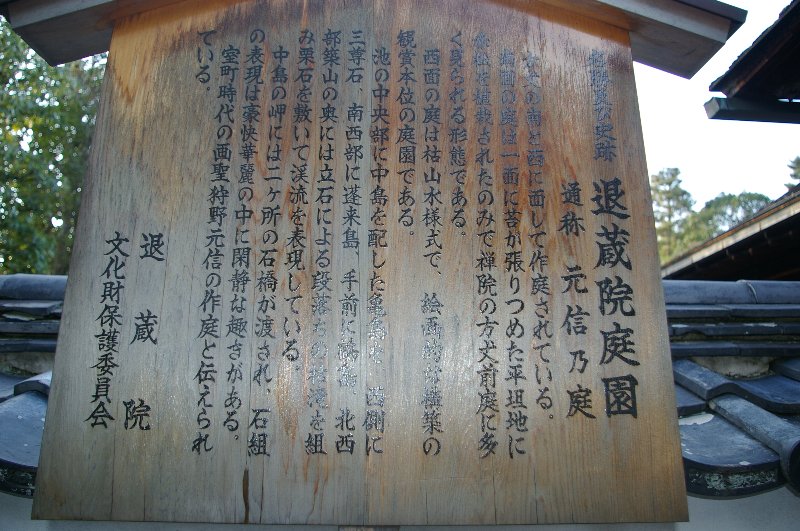 名勝及び史跡
退蔵院庭園
通称 元信乃庭
の南と西に面して作庭されている。
南面の庭は一面に苔が張りつめた平坦地に
赤松を植栽されたのみで禅院の方丈前庭に多
く見られる形態である。
西面の庭は枯山水様式で、絵画的な構築の
観賞本位の庭園である。
池の中央部に中島を配した亀島、西側に
三尊石、南西部に蓬来島、手前に、北西
部築山の奥には立石による段落ちの枯滝を組
み栗石を敷いて渓流を表現している。
中島の岬には二ヶ所の石橋が渡され、石組
の表現は豪快華麗の中に閑静な趣さがある。
室町時代の画聖狩野元信の作庭と伝えられ
ている。
退蔵院
文化財保護委員会